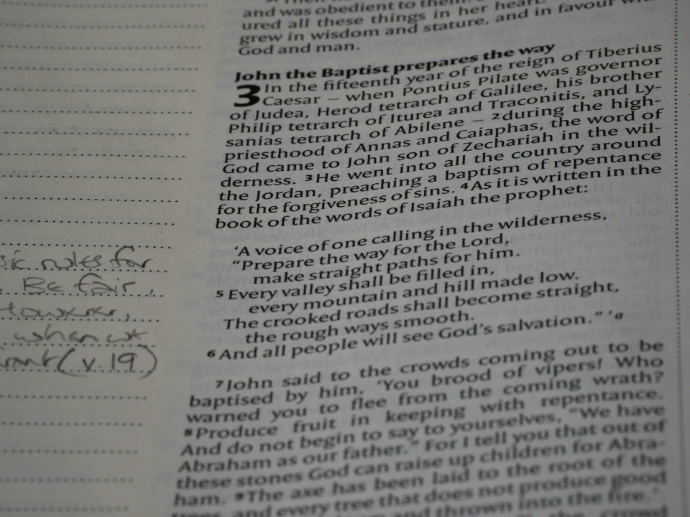 and was obedient to them.
ured all these things in her heart.
grew in wisdom and stature, and in favour with
God and man.
John the Baptist prepares the way
3 In the fifteenth year of the reign of Tiberius
Caesar – when Pontius Pilate was governor
of Judea, Herod tetrarch of Galilee, his brother
Philip tetrarch of Iturea and Traconitis, and Ly-
sanias tetrarch of Abilene – 2 during the high-
priesthood of Annas and Caiaphas, the word of
God came to John son of Zechariah in the wil-
derness. 3 He went into all the country around
the Jordan, preaching a baptism of repentance
for the forgiveness of sins. 4 As it is written in the
book of the words of Isaiah the prophet:
‘A voice of one calling in the wilderness,
“Prepare the way for the Lord,
make straight paths for him.
5 Every valley shall be filled in,
every mountain and hill made low.
The crooked roads shall become straight,
the rough ways smooth.
6 And all people will see God’s salvation.” ’ a
7 John said to the crowds coming out to be
baptised by him, ‘You brood of vipers! Who
warned you to flee from the coming wrath?
8 Produce fruit in keeping with repentance.
And do not begin to say to yourselves, “We have
Abraham as our father.” For I tell you that out of
these stones God can raise up children for Abra-
ham. 9 The axe has been laid to the root of the
trees, and every tree that does not produce good
and thrown into the fire.’
the crowd
rules for
Be fair,
However,
when we
want (v 19)